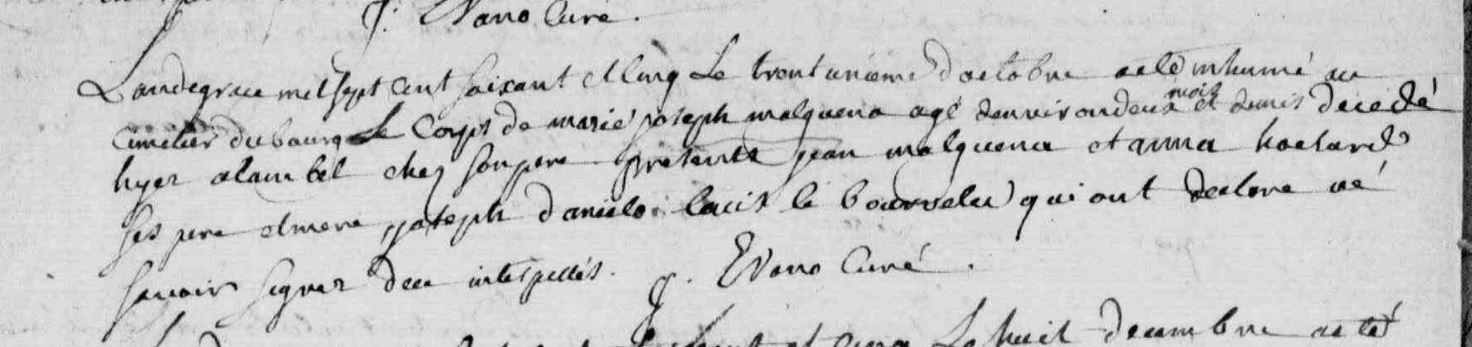 J. Evano Curé.
L'an de grace mil sept cent soixant et cinq Le trent unieme d'octobre a eté inhumé au
cimetier du bourg Le Corps de marie joseph malquena agé d'environ deux mois et demis decedé
hyer a lambel chez son pere presents jean malquena et anna
ses pere et mere, joseph danielo louis le bourvelu qui ont declare ne
savoir signer dee interpellés. J. Evano Curé.
et cinq Le huit decembre a eté